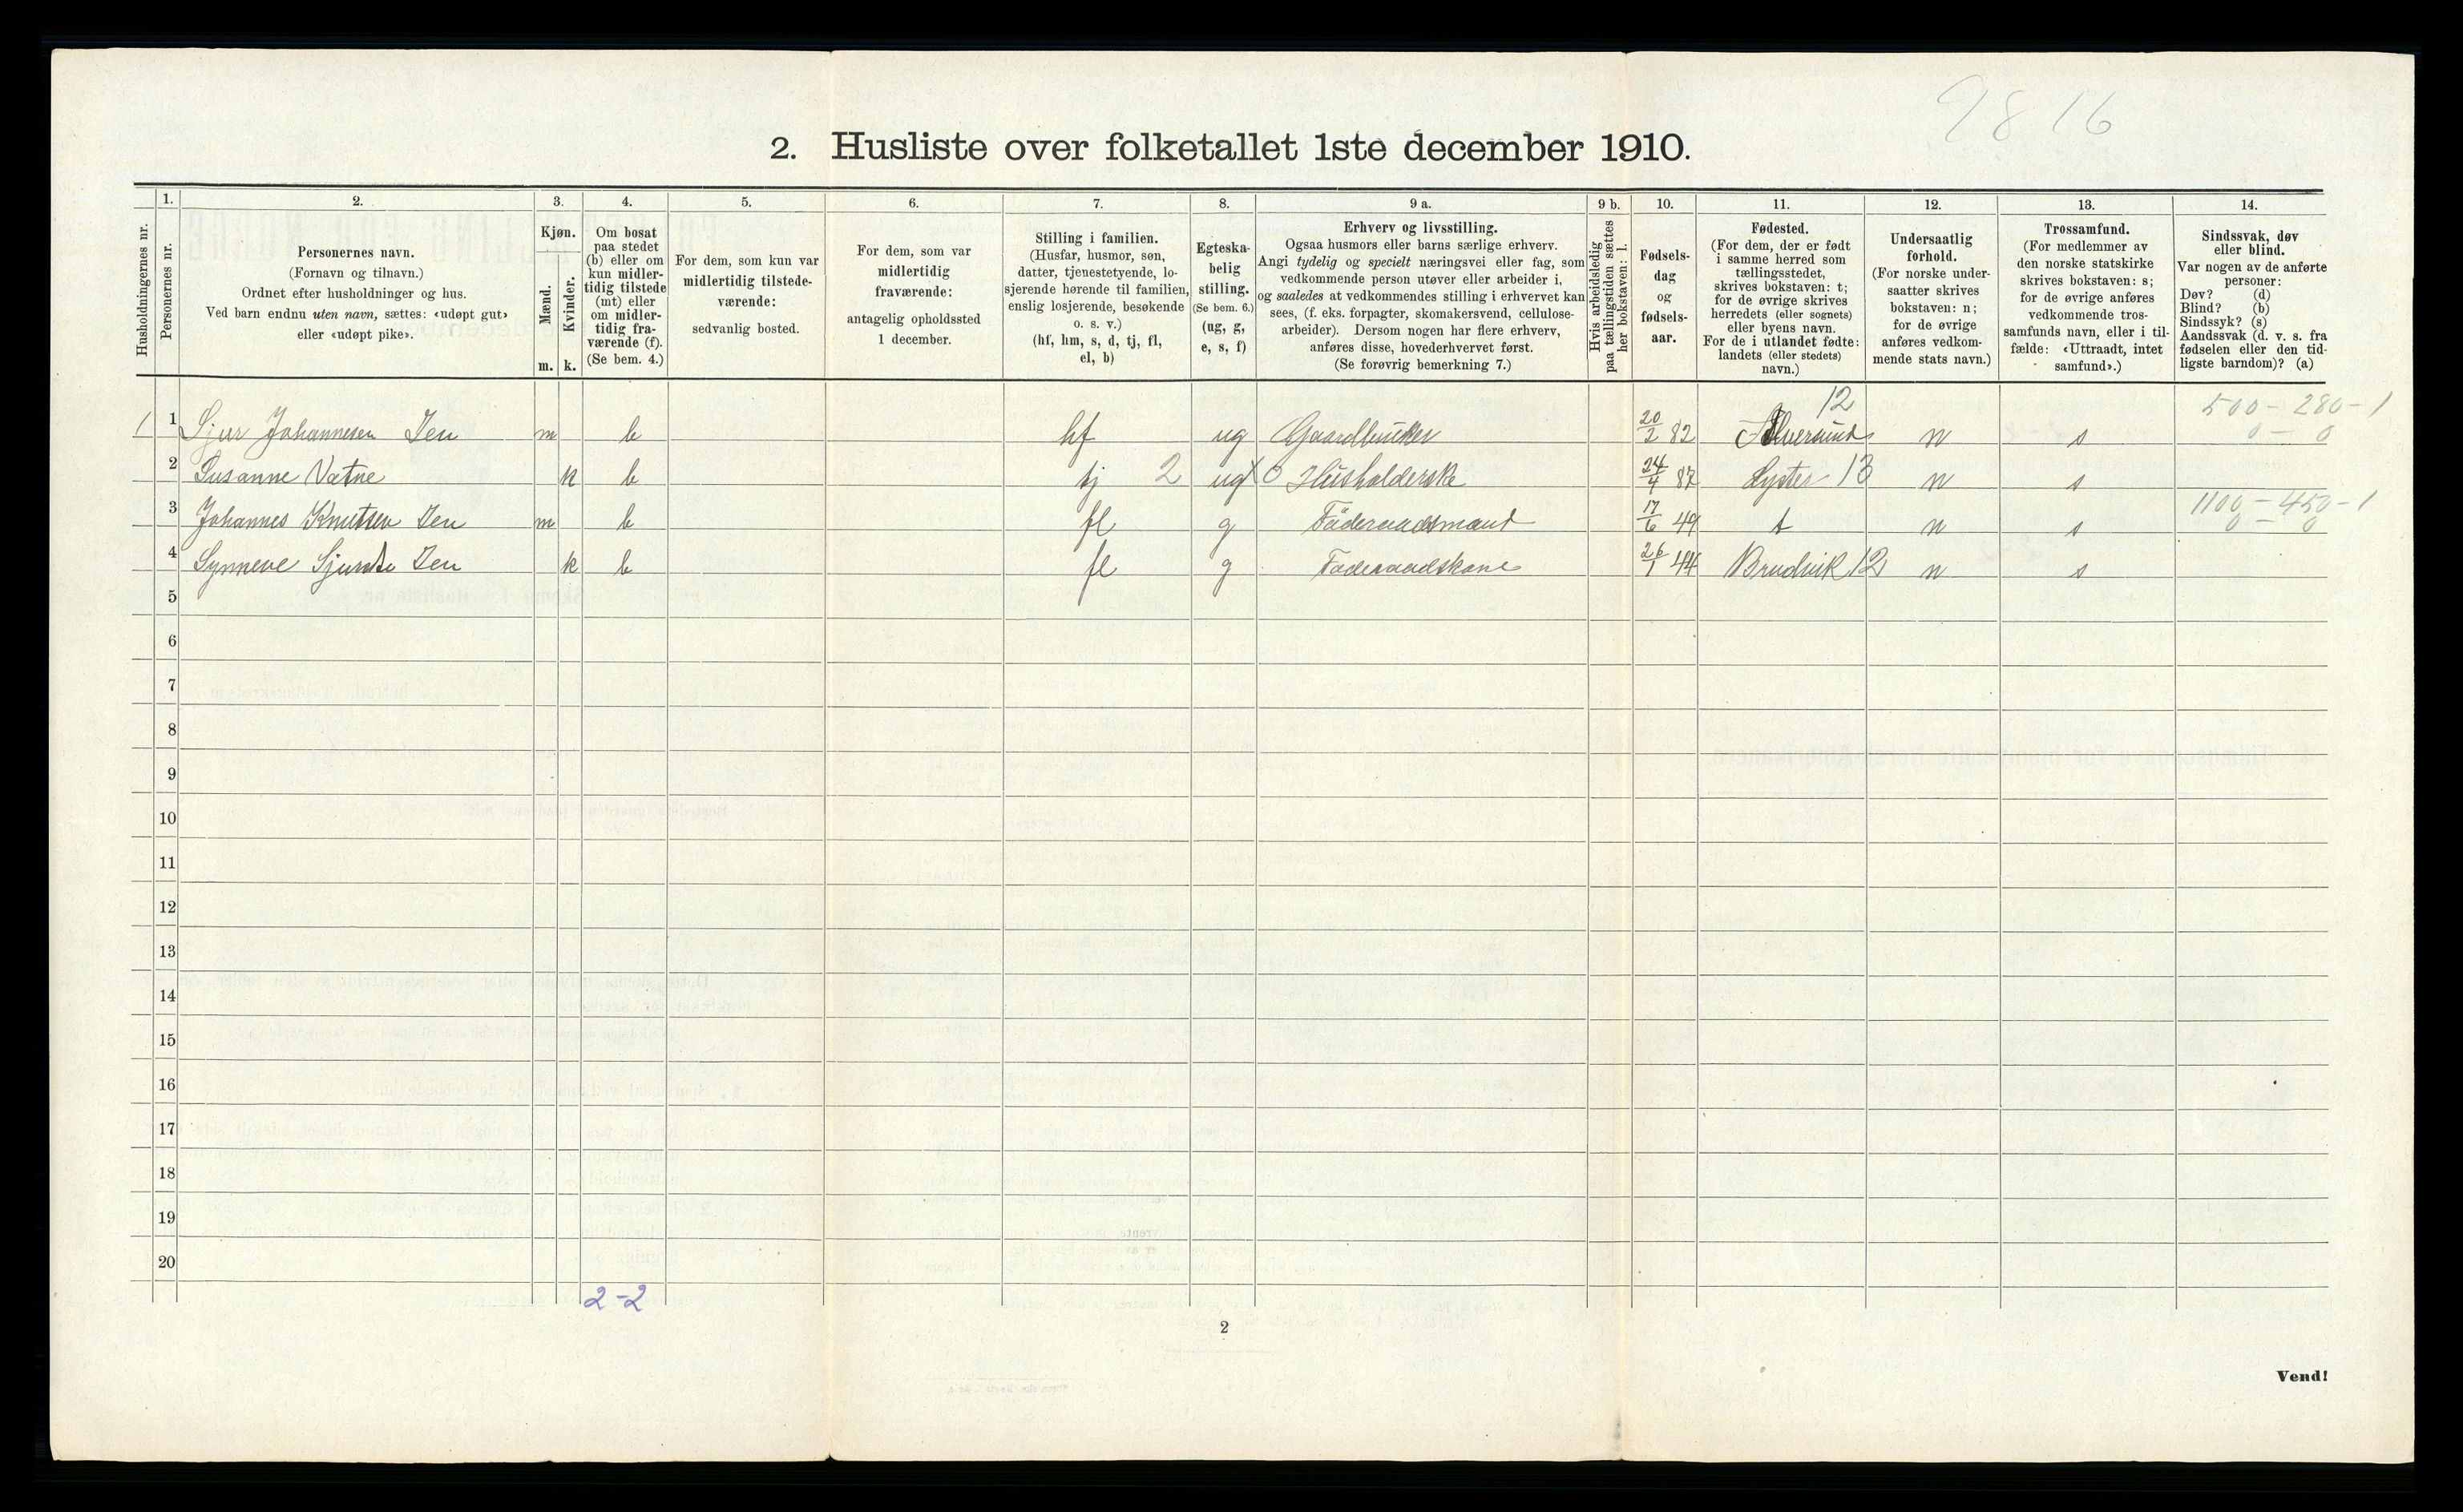 9816
2. Husliste over folketallet 1ste december 1910.
Husholdningernes nr.
1.
Personernes nr.
2.
Personernes navn.
(Fornavn og tilnavn.)
Ordnet efter husholdninger og hus.
Ved barn endnu uten navn, sættes: «udøpt gut»
eller «udøpt pike».
3.
Kjøn.
Mænd.
Kvinder.
m. k.
4.
Om bosat
paa stedet
(b) eller om
kun midler-
tidig tilstede
(mt) eller
om midler-
tidig fra-
værende (f).
(Se bem. 4.)
5.
For dem, som kun var
midlertidig tilstede-
værende:
sedvanlig bosted.
6.
For dem, som var
midlertidig
fraværende:
antagelig opholdssted
1 december.
7.
Stilling i familien.
(Husfar, husmor, søn,
datter, tjenestetyende, lo-
sjerende hørende til familien,
enslig losjerende, besøkende
o. s. v.)
(hf, hm, s, d, tj, fl,
el, b)
8.
Egteska-
belig
stilling.
(Se bem. 6.)
(ug, g,
e, s, f)
9 a.
Erhverv og livsstilling.
Ogsaa husmors eller barns særlige erhverv.
Angi tydelig og specielt næringsvei eller fag, som
vedkommende person utøver eller arbeider i,
og saaledes at vedkommendes stilling i erhvervet kan
sees, (f. eks. forpagter, skomakersvend, cellulose-
arbeider). Dersom nogen har flere erhverv,
anføres disse, hovederhvervet først.
(Se forøvrig bemerkning 7.)
9 b.
Hvis arbeidsledig
paa tællingstiden sættes
her bokstaven: l.
10.
Fødsels-
dag
og
fødsels-
aar.
11.
Fødested.
(For dem, der er født
i samme herred som
tællingsstedet,
skrives bokstaven: t;
for de øvrige skrives
herredets (eller sognets)
eller byens navn.
For de i utlandet fødte:
landets (eller stedets)
navn.)
12.
Undersaatlig
forhold.
(For norske under-
saatter skrives
bokstaven: n;
for de øvrige
anføres vedkom-
mende stats navn.)
13.
Trossamfund.
(For medlemmer av
den norske statskirke
skrives bokstaven: s;
for de øvrige anføres
vedkommende tros-
samfunds navn, eller i til-
fælde: «Uttraadt, intet
samfund».)
14.
Sindssvak, døv
eller blind.
Var nogen av de anførte
personer:
Døv? (d)
Blind? (b)
Sindssyk? (s)
Aandssvak (d. v. s. fra
fødselen eller den tid-
ligste barndom)? (a)
12 500 - 280 - 1
1 1 Sjur Johannesen Isen m b hf ug Gaardbruker 20/2 82 Alversund n s 0 - 0
2 Susanne Vatne k b tj 2 ug X 0 Husholderske 24/4 87 Lyster 13 n s
1100 - 450 - 1
3 Johannes Knutsen Isen m b fl g Föderaadsmand 17/6 49 t n s 0 - 0
4 Synneve Sjursd. Isen k b fl g Foderaadskone 26/1 44 Brudvik 12 n s
5
6
7
8
9
10
11
12
13
14
15
16
17
18
19
20
2 - 2
2
Vend!